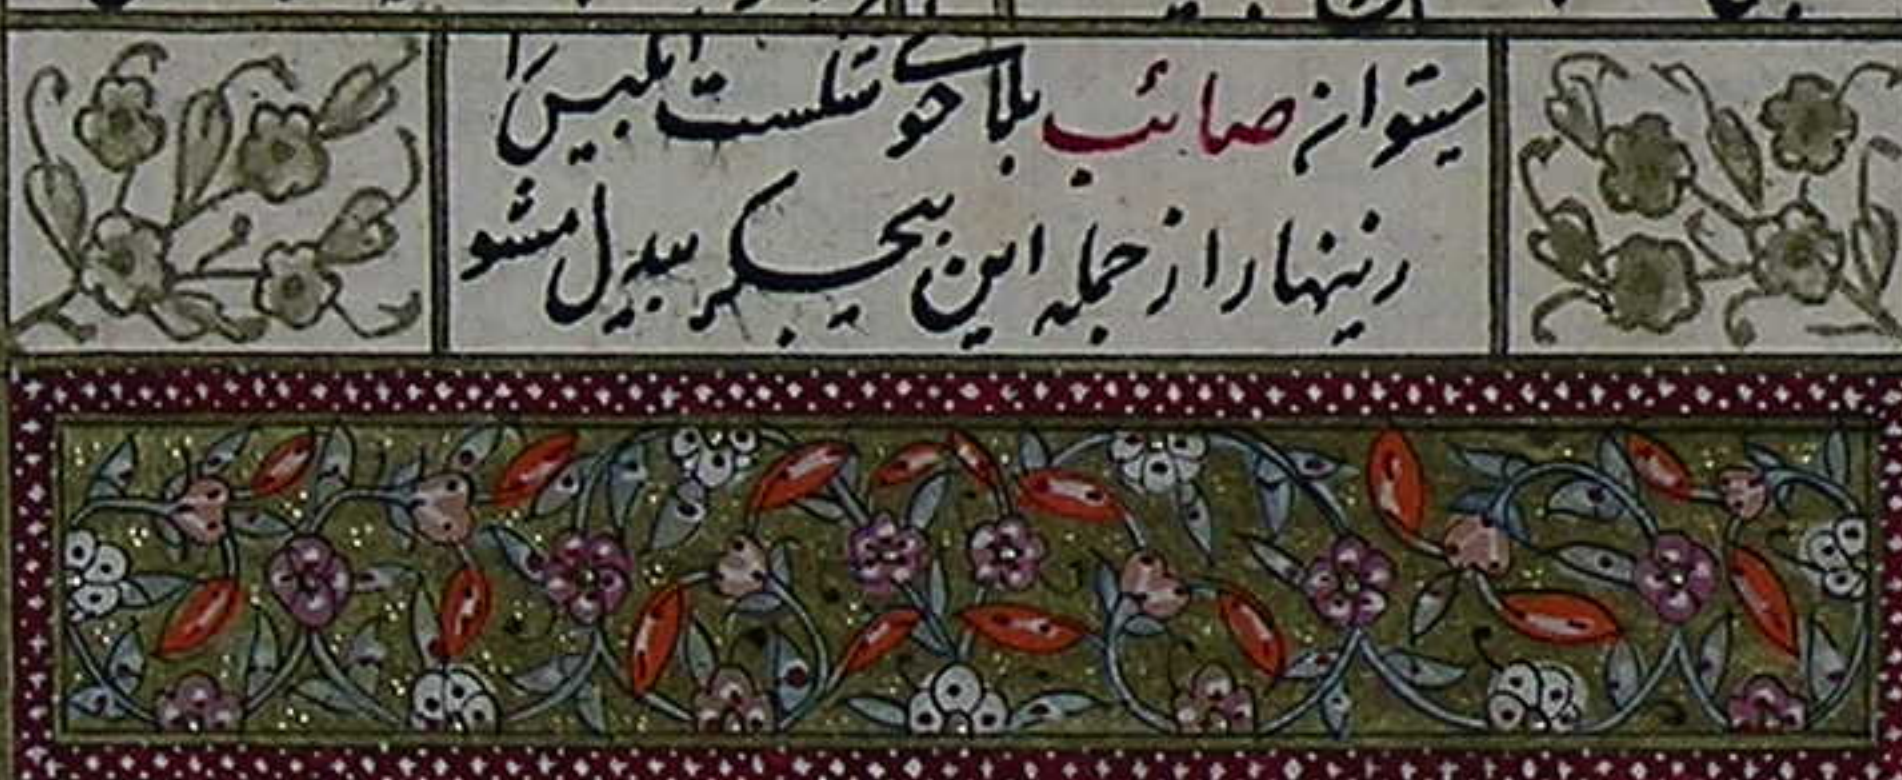 میتوان صائب بلاحولی شکست ابلیس را
زینهار از حمله این بیجگر بیدل مشو